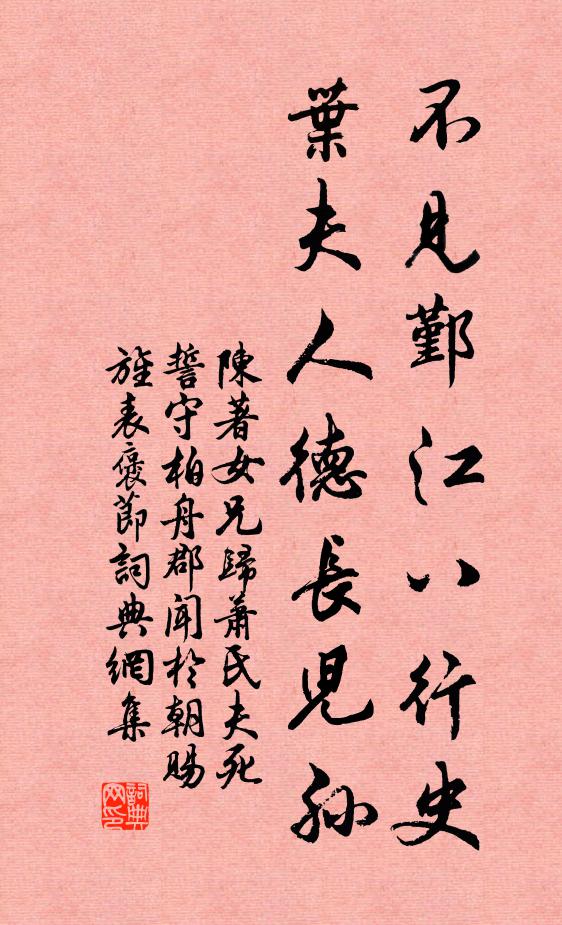 不見鄞江八行史
葉夫人德長兒孫
陳著女兄歸蕭氏夫死
誓守柏舟郡聞於朝賜
旌表褒節詞典網集
詞典网印